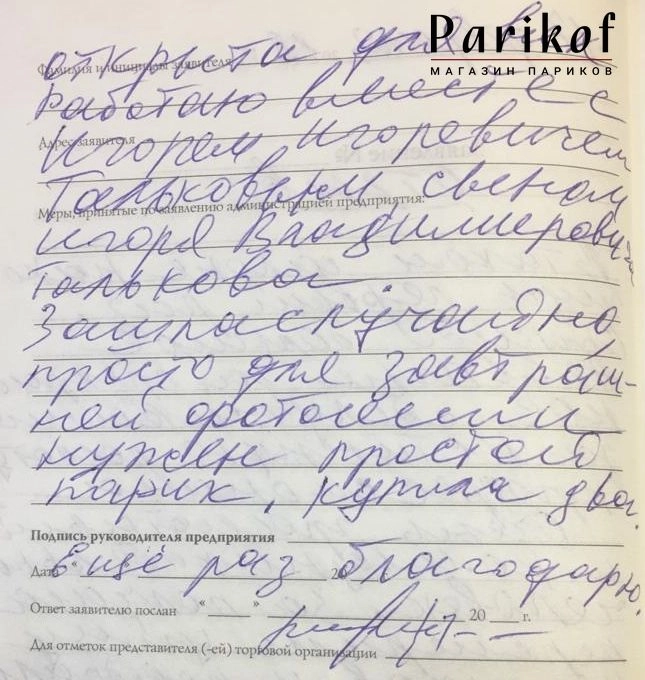 Parikof
МАГАЗИН ПАРИКОВ
открыта для вас
Фамилия и инициалы заявителя
Работаю вместе с
Адрес заявителя
Игорем Игоревичем
Тальковым, сыном
Меры, принятые по заявлению администрацией предприятия:
Игоря Владимирови
Талькова
Зашла случайно,
просто для завтраш-
ней фотосессии
нужен простой
парик, купила два.
Подпись руководителя предприятия
Ещё раз благодарю.
Дата " 20
Ответ заявителю послан " " 20 г.
Для отметок представителя (-ей) торговой организации